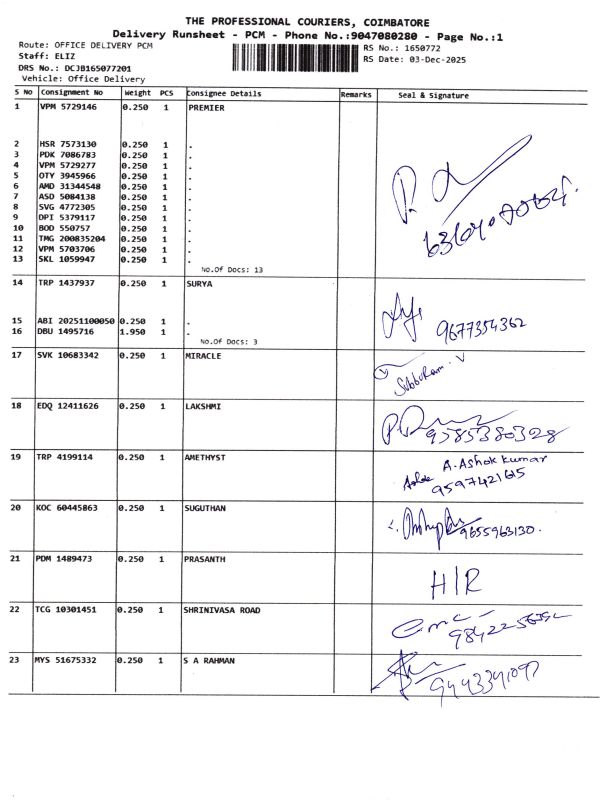 THE PROFESSIONAL COURIERS, COIMBATORE
Delivery Runsheet - PCM - Phone No.:9047080280 - Page No.:1
Route: OFFICE DELIVERY PCM
RS No.: 1650772
Staff: ELIZ
RS Date: 03-Dec-2025
DRS No.: DCJB165077201
Vehicle: Office Delivery
S No Consignment No Weight PCS Consignee Details Remarks Seal & Signature
1 VPM 5729146 0.250 1 PREMIER
2 HSR 7573130 0.250 1 .
3 PDK 7086783 0.250 1 .
4 VPM 5729277 0.250 1 .
5 OTY 3945966 0.250 1 .
6 AMD 31344548 0.250 1 .
7 ASD 5084138 0.250 1 .
8 SVG 4772305 0.250 1 .
9 DPI 5379117 0.250 1 .
10 BOD 550757 0.250 1 .
11 TMG 200835204 0.250 1 .
12 VPM 5703706 0.250 1 .
13 SKL 1059947 0.250 1 .
No.Of Docs: 13
14 TRP 1437937 0.250 1 SURYA
15 ABI 20251100050 0.250 1 .
16 DBU 1495716 1.950 1 . 9677354362
No.Of Docs: 3
17 SVK 10683342 0.250 1 MIRACLE
Subburam. V
18 EDQ 12411626 0.250 1 LAKSHMI
9585380328
19 TRP 4199114 0.250 1 AMETHYST A. Ashok kumar
9597421615
20 KOC 60445863 0.250 1 SUGUTHAN
9655963130.
21 PDM 1489473 0.250 1 PRASANTH
H/R
22 TCG 10301451 0.250 1 SHRINIVASA ROAD
23 MYS 51675332 0.250 1 S A RAHMAN
9443341097